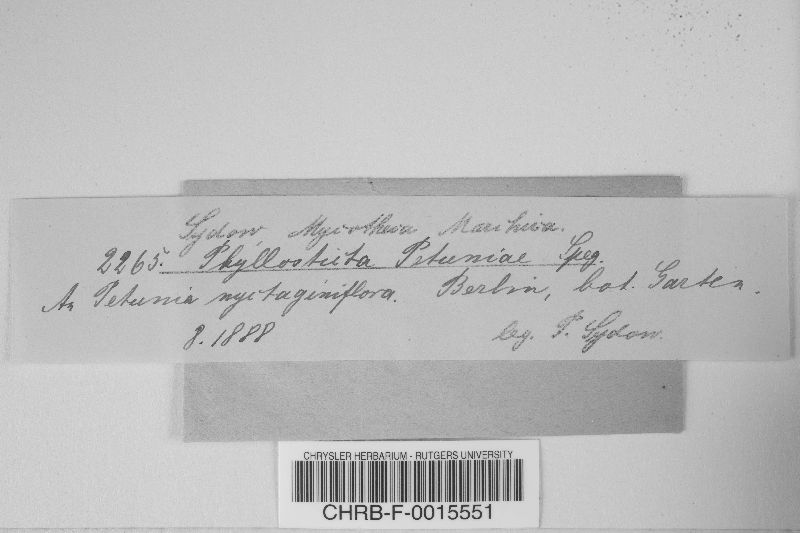 Sydow Mycotheca Marchica.
2265. Phyllosticta Petuniae Speg.
An Petunia nyctaginiflora. Berlin, bot. Garten.
8.1888 leg. P. Sydow.
CHRYSLER HERBARIUM - RUTGERS UNIVERSITY
CHRB-F-0015551